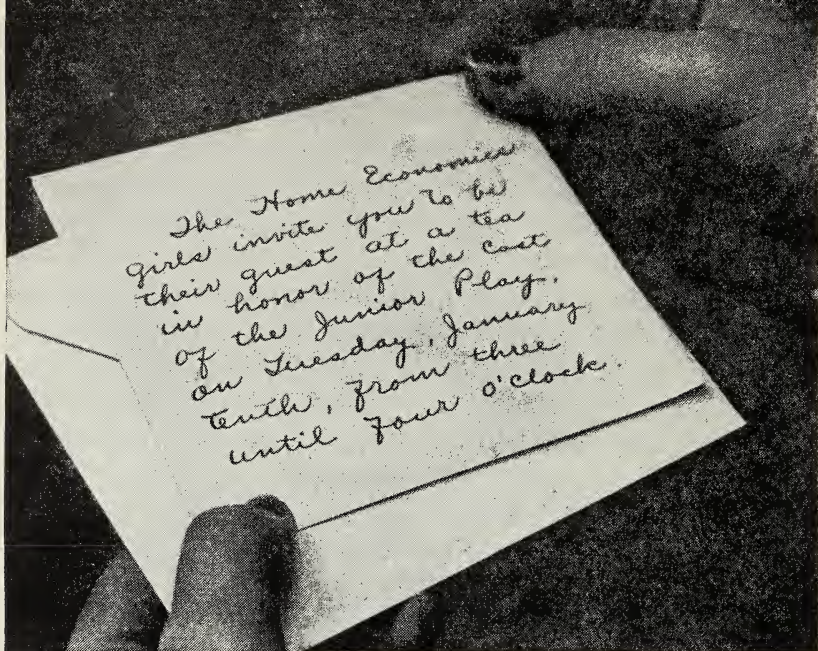 The Home Economics
girls invite you to be
their guest at a tea
in honor of the cast
of the Junior Play,
on Tuesday, January
tenth, from three
until four o'clock.